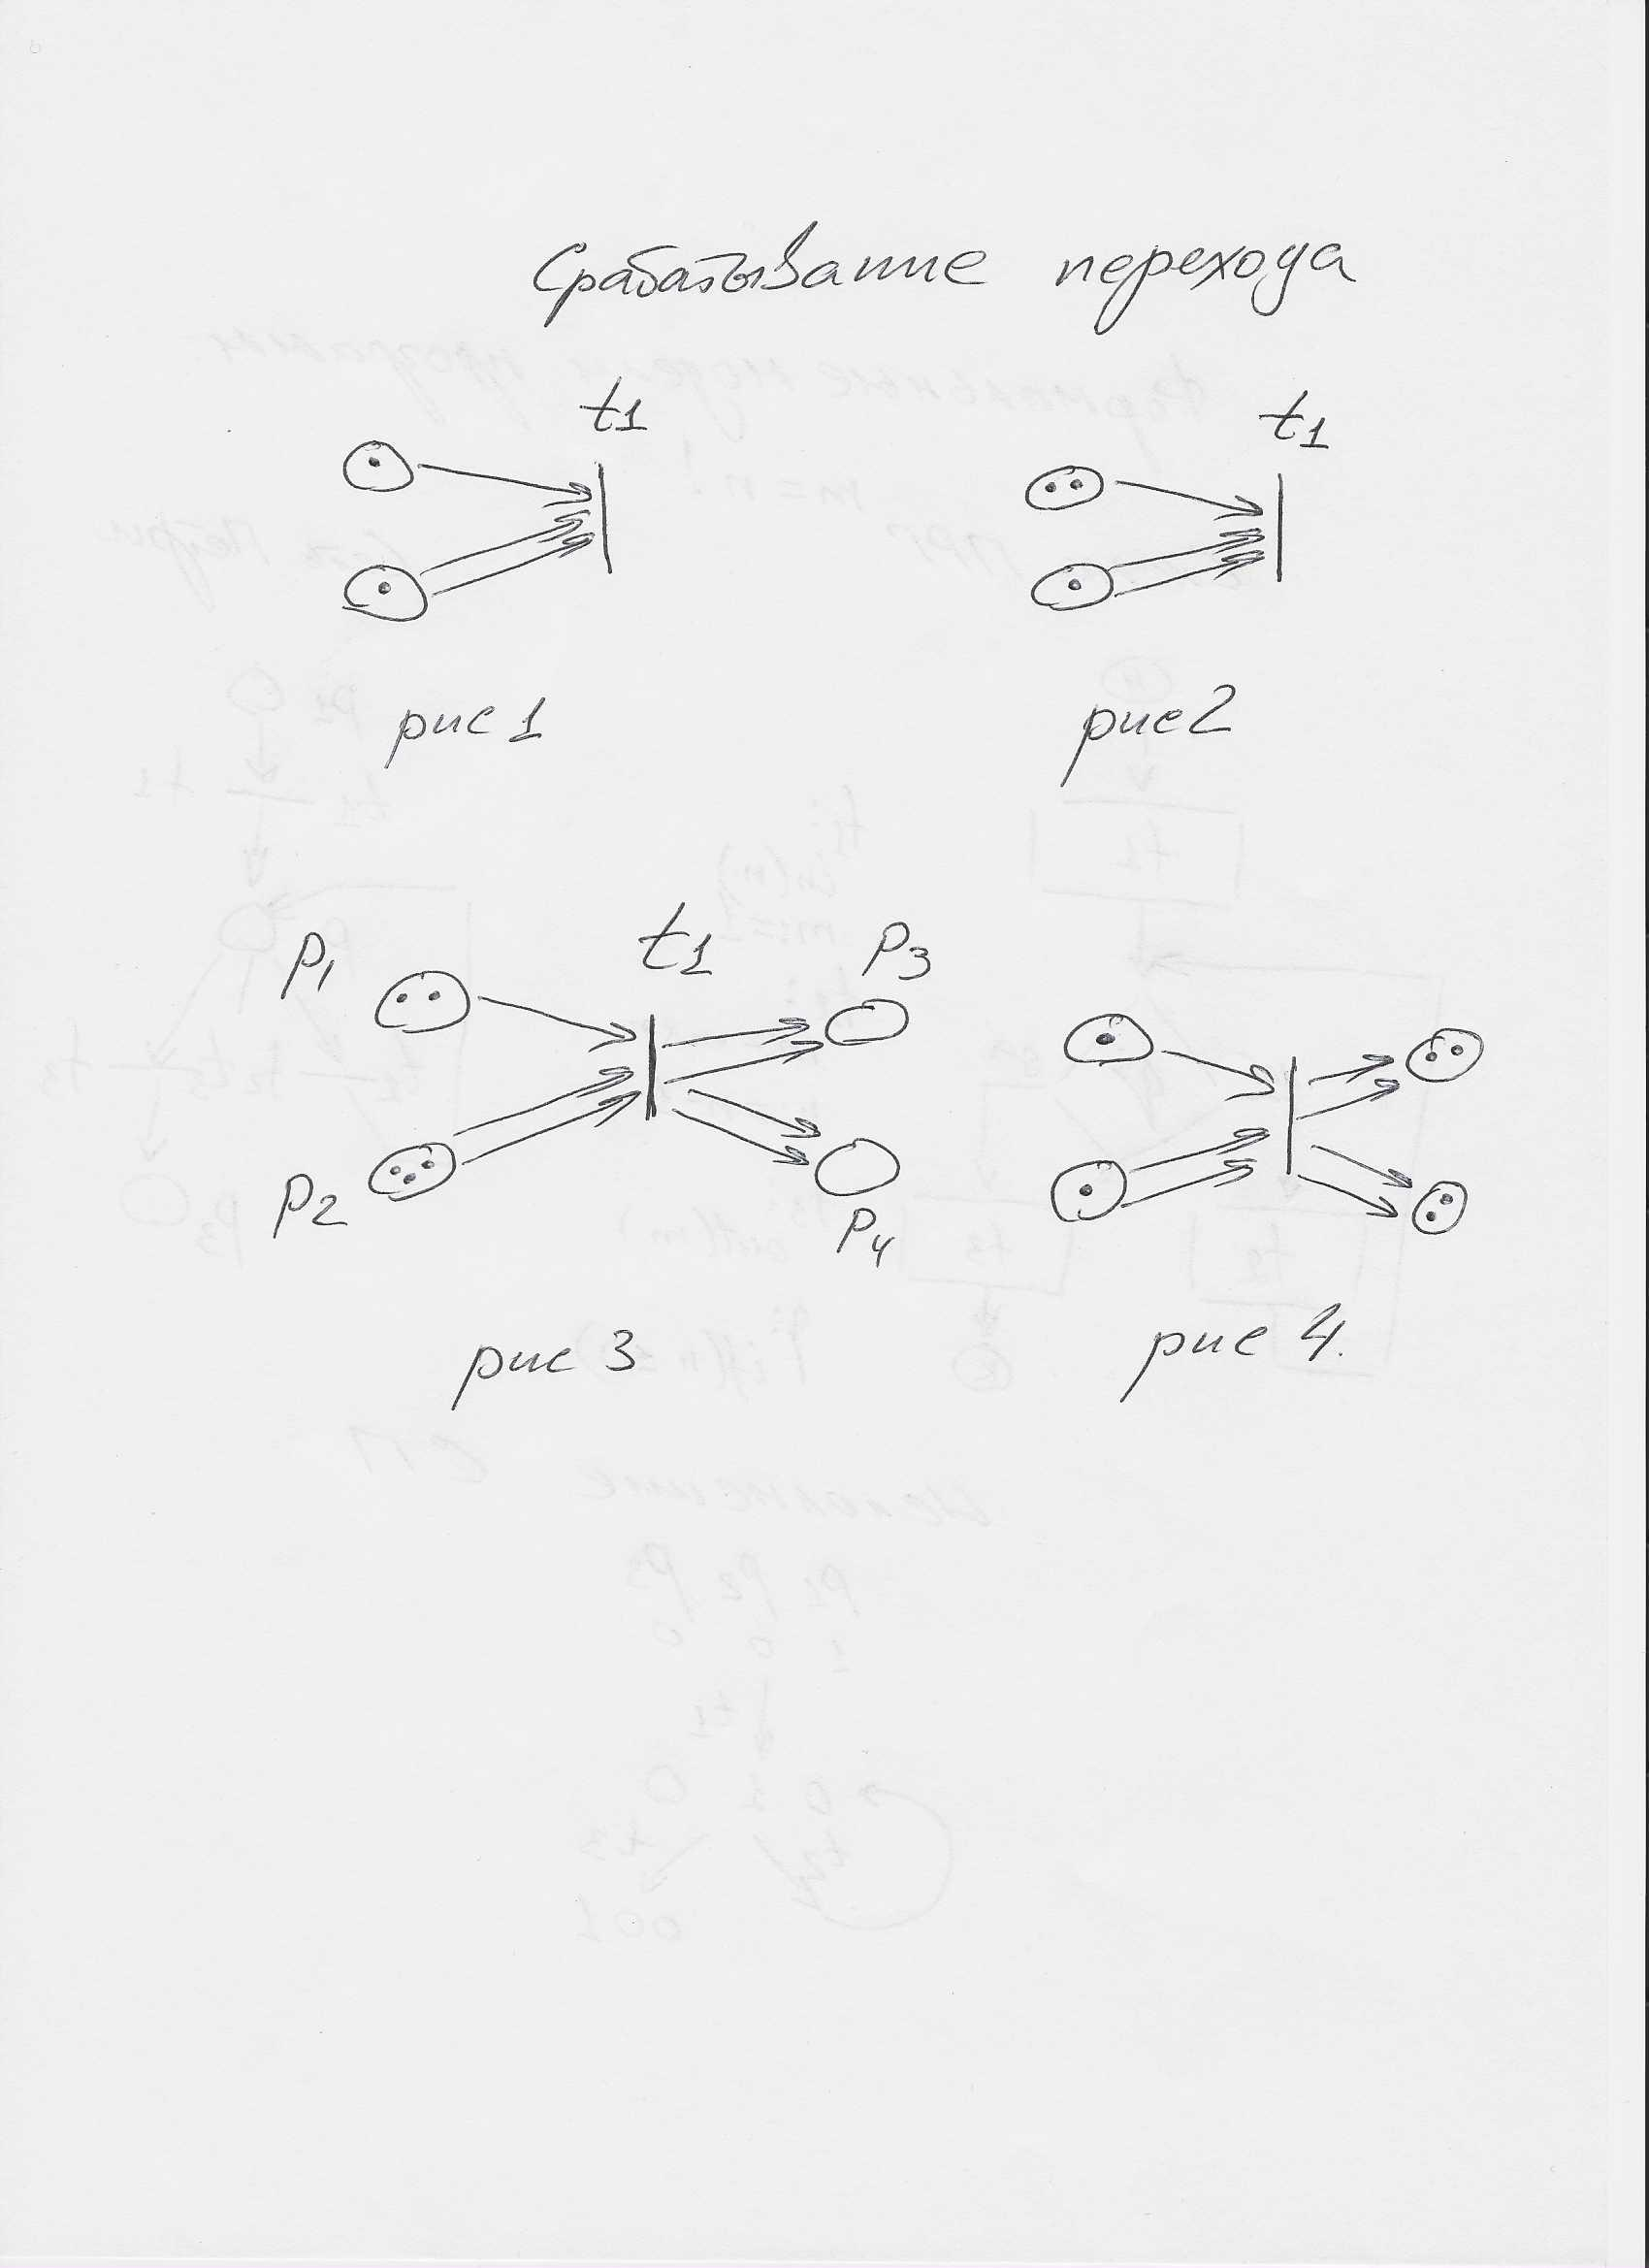 Срабатывание перехода
t1
t1
рис 1
рис 2
p1
t1
p3
p2
p4
рис 3
рис 4.